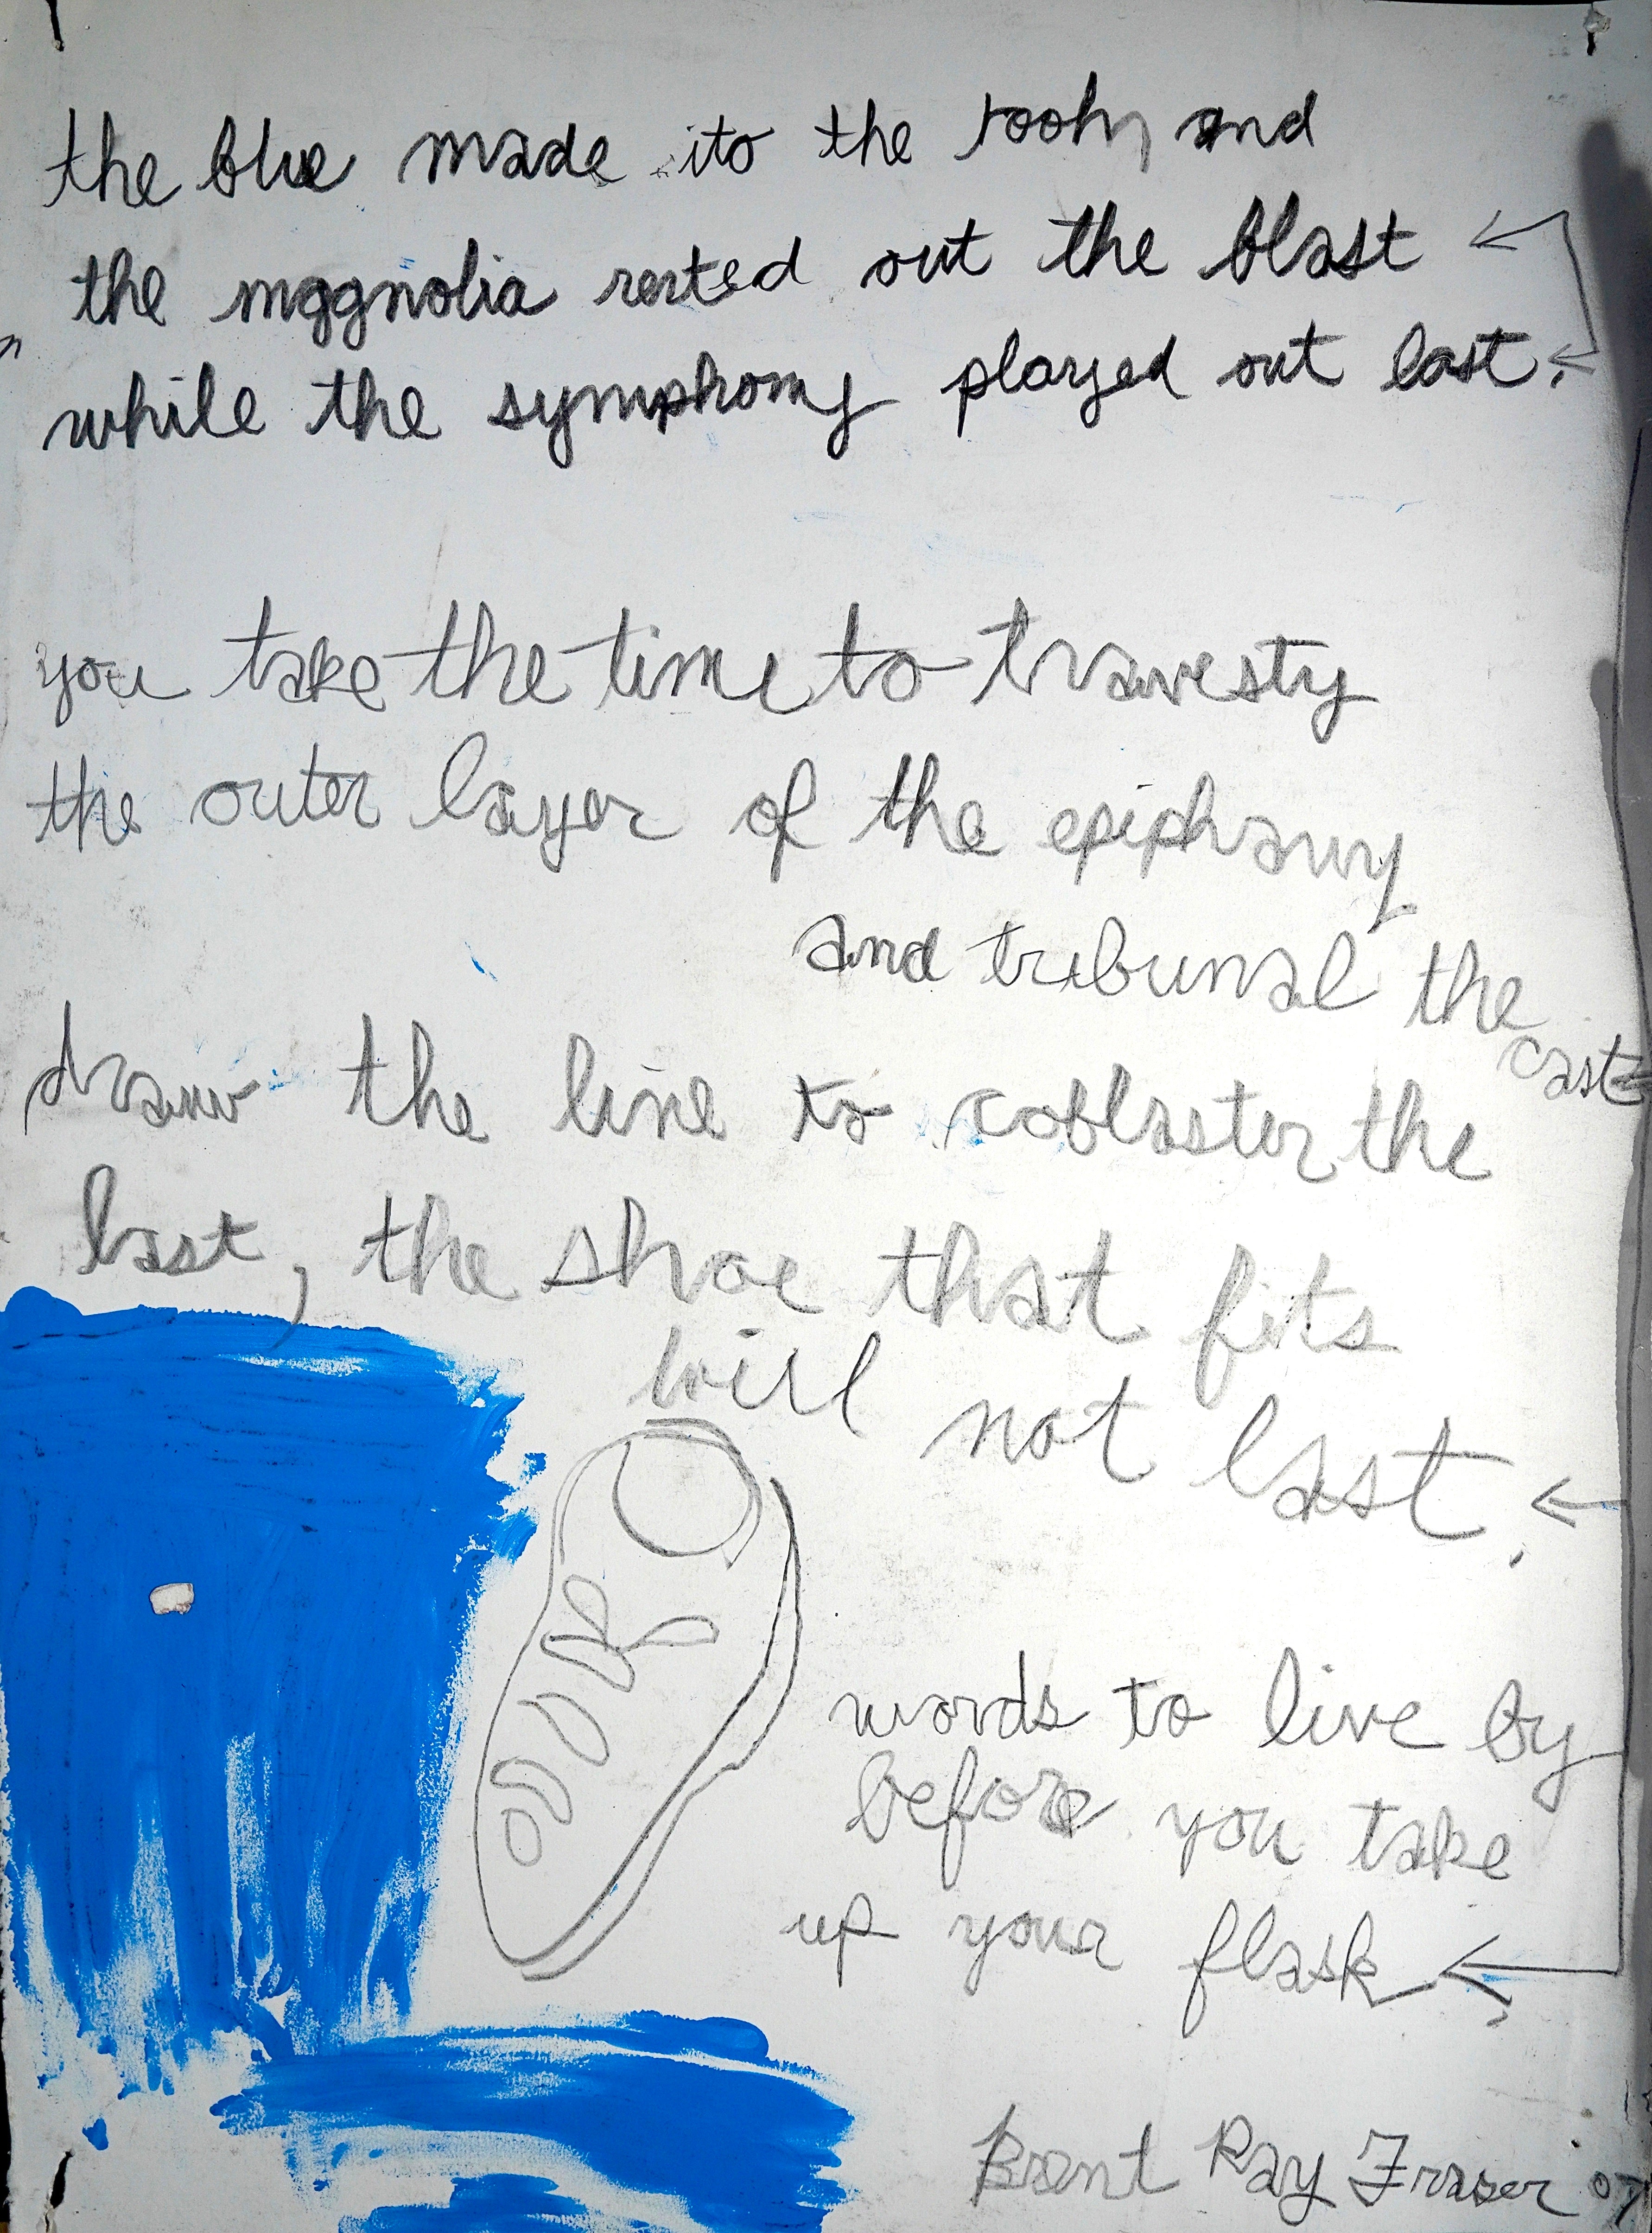 the blue made ito the room and
the magnolia rested out the blast
while the symphony played out last.
you take the time to travesty
the outer layer of the epiphany
and tribunal the
cast
draw the line to coblaster the
last, the shoe that fits
will not last.
words to live by
before you take
up your flask
Brent Ray Fraser 07